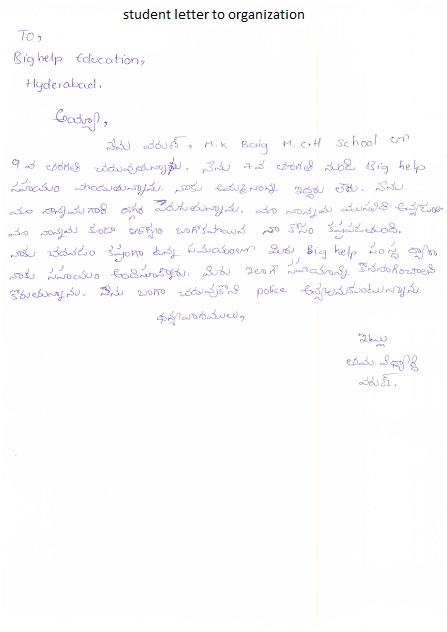 student letter to organization
To,
Bighelp Education,
Hyderabad.
అయ్యా,
నేను వరుణ్, M.K Baig M.C.H School లో
9 వ తరగతి చదువుతున్నాను. నేను 7వ తరగతి నుండి Big help
సహాయం పొందుతున్నాను. నాకు అమ్మనాన్న ఇద్దరు లేరు. నేను
మా నాన్నమ్మగారి దగ్గర పెరుగుతున్నాను. మా నాన్నమ్మ ముసలిది
మా నాన్నమ్మ కూడా ఆరోగ్యం బాగోకపోయిన నా కోసం కష్టపడుతుంది.
నాకు చదవడం కష్టంగా ఉన్న సమయంలో మీరు Big help సంస్థ ద్వారా
నాకు సహాయం అందిస్తున్నారు. మీరు ఇలాగే సహాయాన్ని కొనసాగించాలని
కోరుతున్నాను. నేను బాగా చదువుకొని police అవ్వాలనుకుంటున్నాను.
ధన్యవాదములు,
ఇట్లు
తమ విద్యార్థి
వరుణ్.